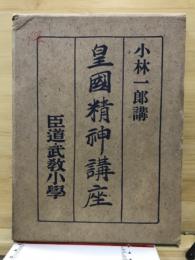 小林一郎講
皇國精神講座
臣道・武敎小學